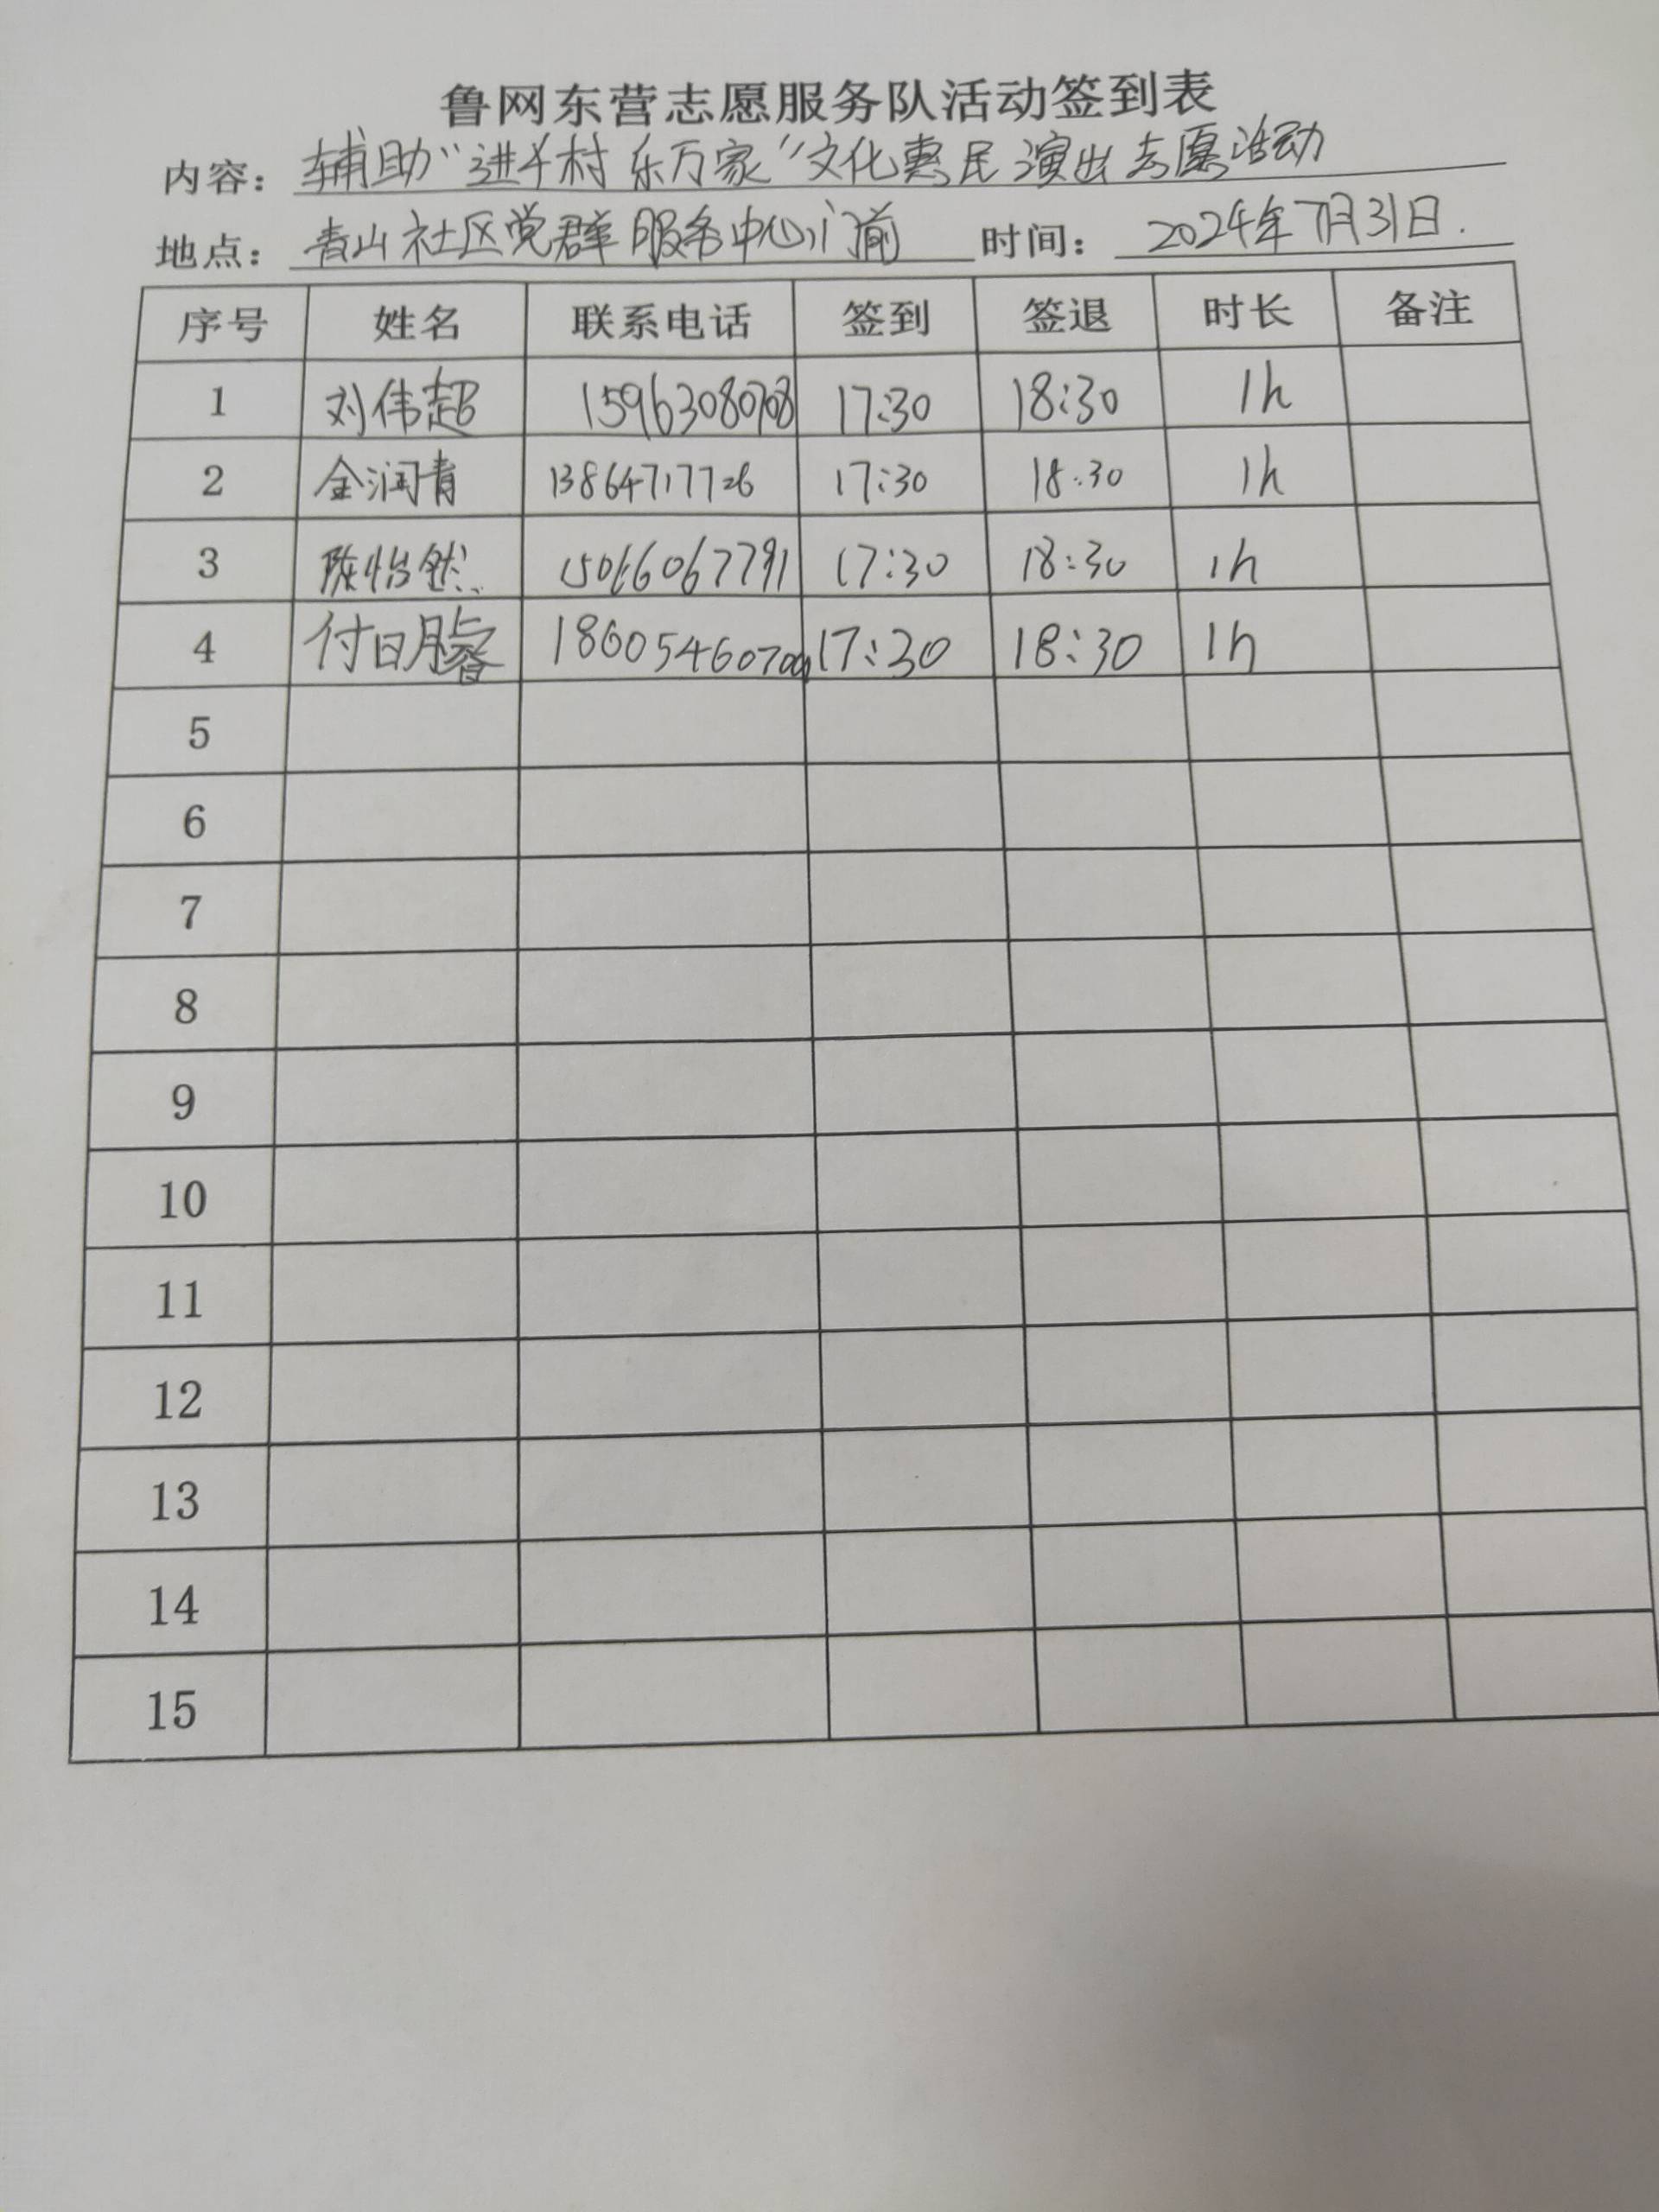 鲁网东营志愿服务队活动签到表
内容：辅助“进千村 乐万家”文化惠民演出志愿活动
地点：青山社区党群服务中心门前 时间：2024年7月31日.
序号 姓名 联系电话 签到 签退 时长 备注
1 刘伟超 15963080708 17:30 18:30 1h
2 金润青 13864717726 17:30 18:30 1h
3 陈怡然 15066067791 17:30 18:30 1h
4 18605460709 17:30 18:30 1h
5
6
7
8
9
10
11
12
13
14
15